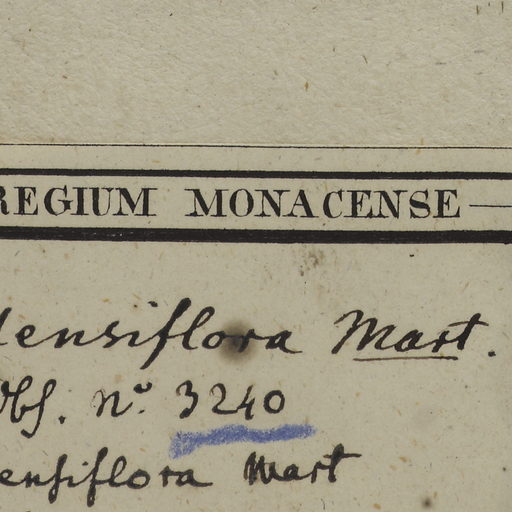 REGIUM MONACENSE
densiflora Mart.
Obs. nº 3240
densiflora Mart